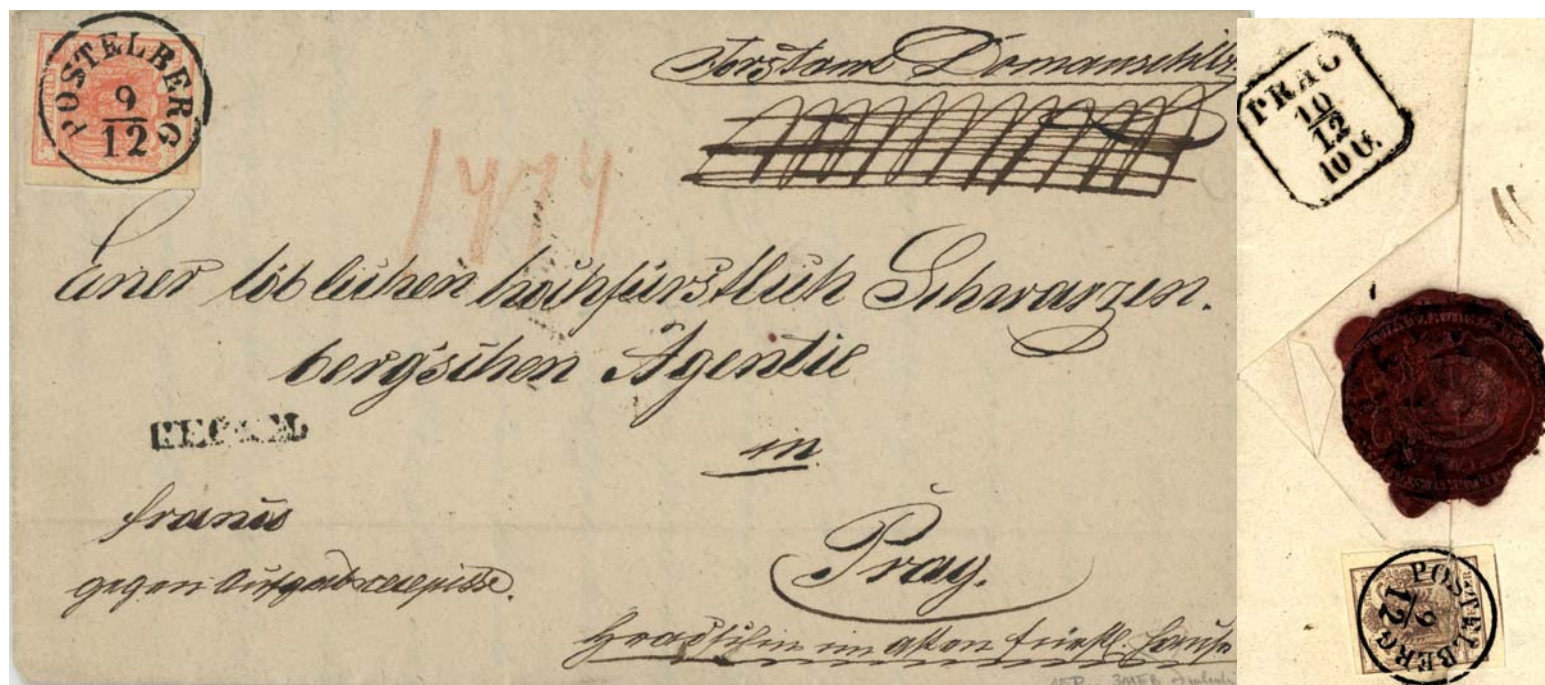 POSTELBERG
9
12
Forstamt Domauschitz
1474
Einer löblichen hochfürstlich Schwarzen.
berg'schen Agentie
in
Prag.
RECOM
franco
gegen Aufgabsrecepisse.
Hradschin im alten fürstl. Hause
PRAG
10
12
10 U.
POSTELBERG
9
12